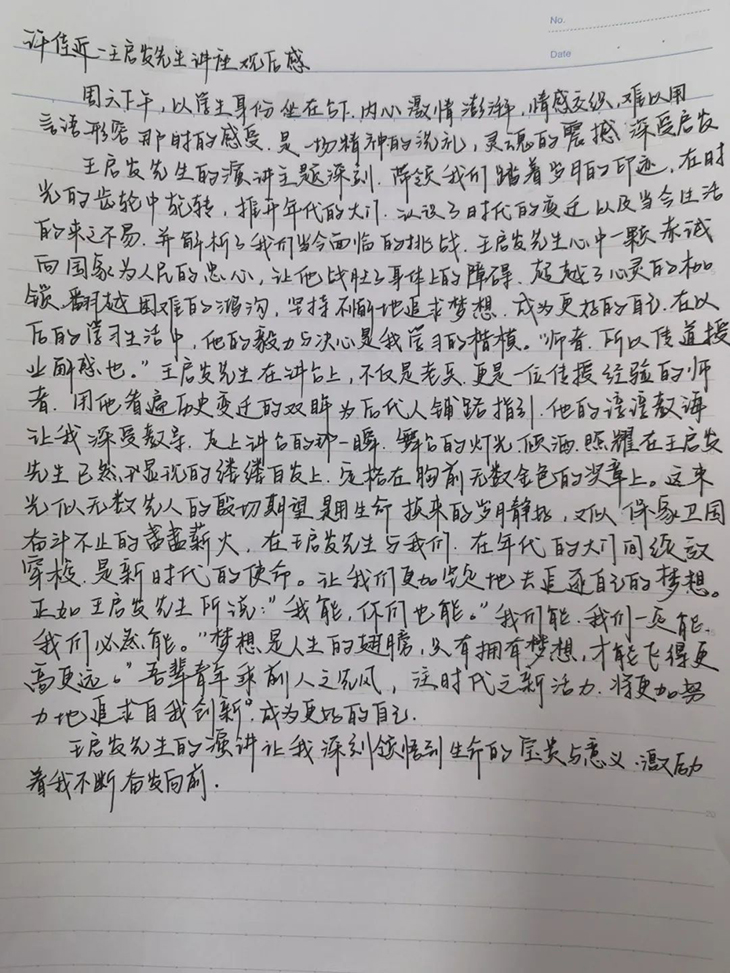 No.
Date
许佳近-王启发先生讲座观后感
周六下午，以学生身份坐在台下.内心激情澎湃，情感交织，难以用
言语形容那时的感受.是一场精神的洗礼，灵魂的震撼.深受启发
王启发先生的演讲主题深刻.带领我们踏着岁月的印迹，在时
光的齿轮中轮转，推开年代的大门.认识了时代的变迁以及当今生活
的来之不易.并解析了我们当今面临的挑战.王启发先生心中一颗赤诚
向国家为人民的忠心，让他战胜了身体上的障碍.超越了心灵的枷
锁.翻越困难的鸿沟，坚持不懈地追求梦想.成为更好的自己.在以
后的学习生活中，他的毅力与决心是我学习的楷模。"师者.所以传道授
业解惑也。"王启发先生在讲台上，不仅是老兵.更是一位传授经验的师
者.用他看遍历史变迁的双眸为后代人铺路指引.他的谆谆教诲
让我深受教导.走上讲台的那一瞬.舞台的灯光倾洒.照耀在王启发
先生已然明显的缕缕白发上.定格在胸前无数金色的奖章上。这束
光似无数先人的殷切期望.是用生命换来的岁月静好，又似保家卫国
奋斗不止的盏盏薪火，在王启发先生与我们.在年代的大门间
穿梭.是新时代的使命。让我们更加坚定地去追逐自己的梦想。
正如王启发先生所说："我能，你们也能。"我们能.我们一定能.
我们必然能。"梦想是人生的翅膀，只有拥有梦想，才能飞得更
高更远。"吾辈青年乘前人之先风，注时代之新活力.将更加努
力地追求自我创新.成为更好的自己.
王启发先生的演讲让我深刻领悟到生命的宝贵与意义.激励
着我不断奋发向前.